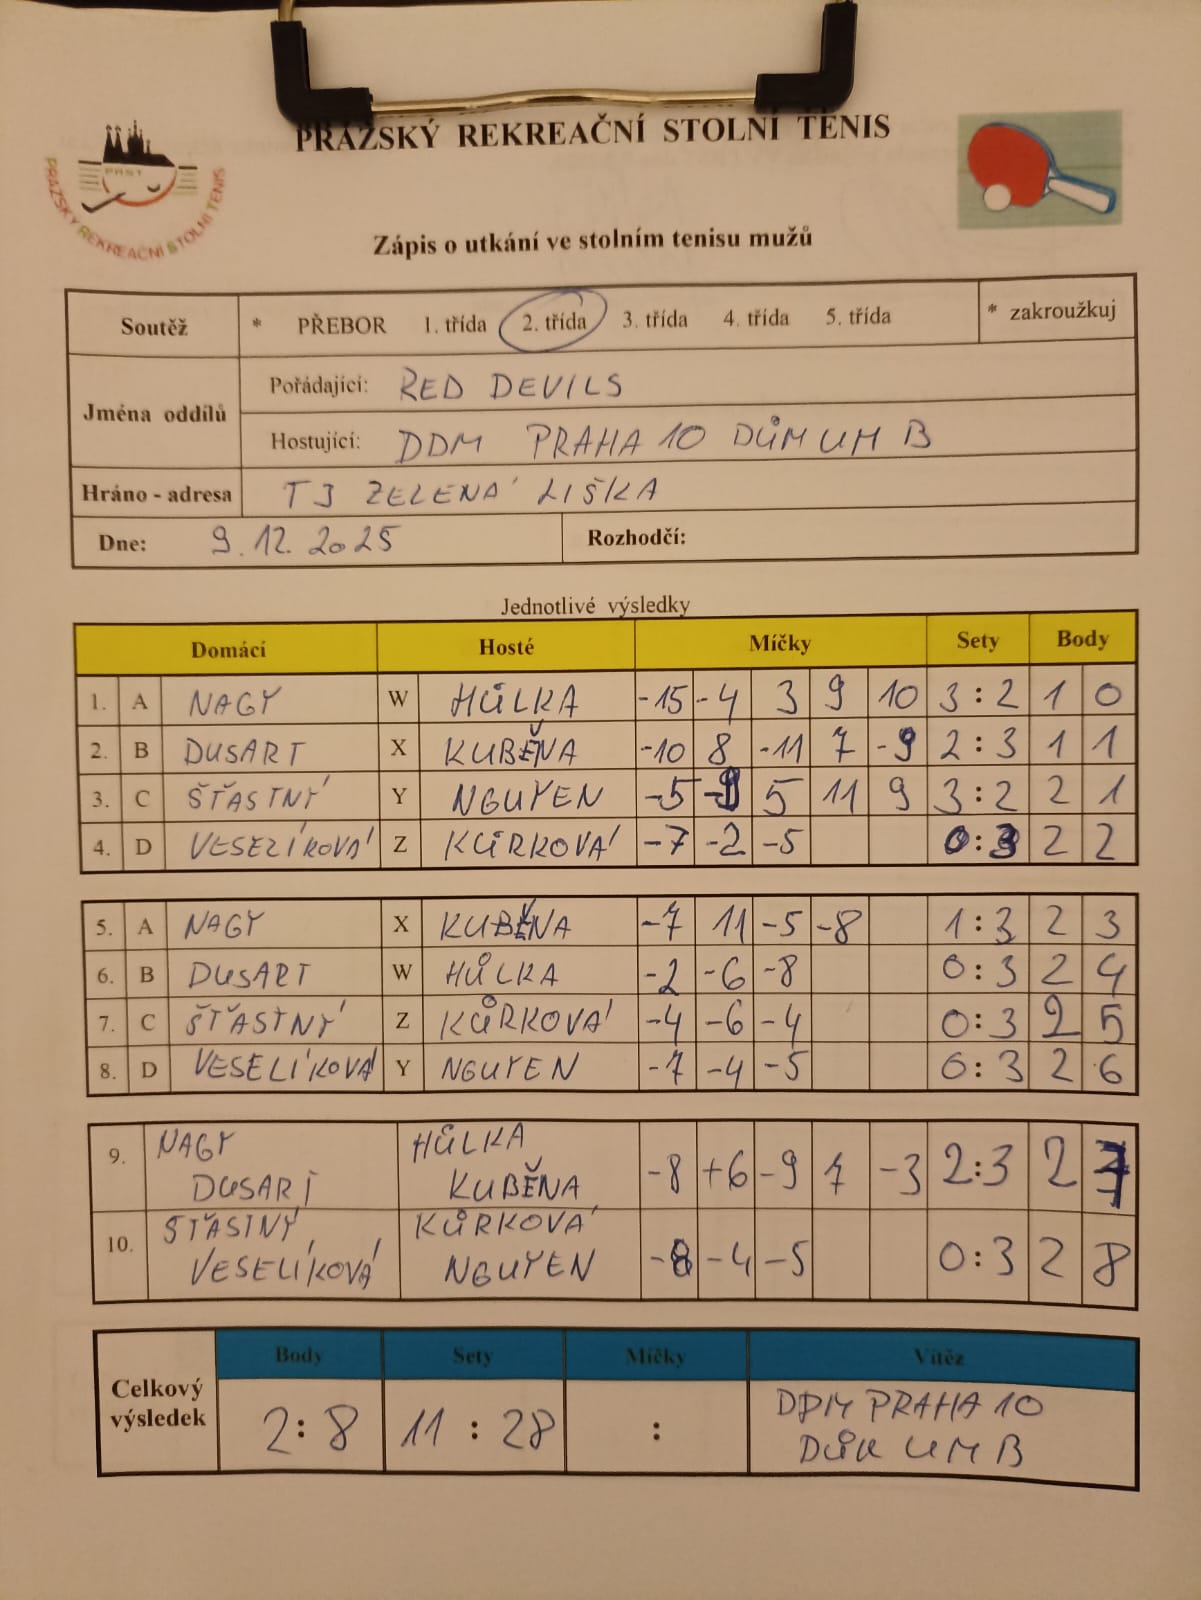 PRAŽSKÝ REKREAČNÍ STOLNÍ TENIS
PRST
PRAŽSKÝ REKREAČNÍ STOLNÍ TENIS
Zápis o utkání ve stolním tenisu mužů
Soutěž * PŘEBOR 1. třída 2. třída 3. třída 4. třída 5. třída * zakroužkuj
Jména oddílů
Pořádající: RED DEVILS
Hostující: DDM PRAHA 10 DŮM UM B
Hráno - adresa TJ ZELENÁ LIŠKA
Dne: 9.12.2025 Rozhodčí:
Jednotlivé výsledky
Domácí Hosté Míčky Sety Body
1. A NAGY W HŮLKA -15 -4 3 9 10 3:2 1 0
2. B DUSART X KUBĚNA -10 8 -11 7 -9 2:3 1 1
3. C ŠŤASTNÝ Y NGUYEN -5 -9 5 11 9 3:2 2 1
4. D VESELÍKOVÁ Z KŮRKOVÁ -7 -2 -5 0:3 2 2
5. A NAGY X KUBĚNA -7 11 -5 -8 1:3 2 3
6. B DUSART W HŮLKA -2 -6 -8 0:3 2 4
7. C ŠŤASTNÝ Z KŮRKOVÁ -4 -6 -4 0:3 2 5
8. D VESELÍKOVÁ Y NGUYEN -7 -4 -5 0:3 2 6
9. NAGY HŮLKA -8 +6 -9 7 -3 2:3 2 7
DUSART KUBĚNA
10. ŠŤASTNÝ KŮRKOVÁ -8 -4 -5 0:3 2 8
VESELÍKOVÁ NGUYEN
Body Sety Míčky Vítěz
Celkový výsledek 2:8 11:28 : DDM PRAHA 10
DŮM UM B